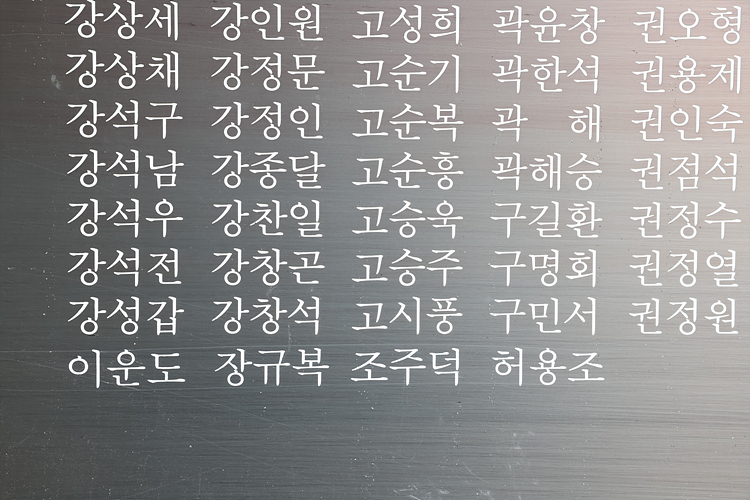 강상세 강인원 고성희 곽윤창 권오형
강상채 강정문 고순기 곽한석 권용제
강석구 강정인 고순복 곽 해 권인숙
강석남 강종달 고순흥 곽해승 권점석
강석우 강찬일 고승욱 구길환 권정수
강석전 강창곤 고승주 구명회 권정열
강성갑 강창석 고시풍 구민서 권정원
이운도 장규복 조주덕 허용조